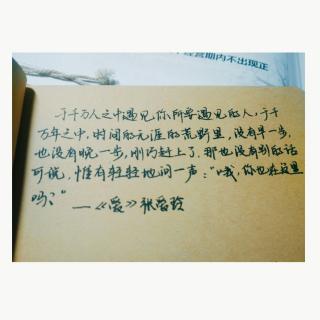 经营期内不出现正
于千万人之中遇见你所要遇见的人,于千
万年之中,时间的无涯的荒野里,没有早一步,
也没有晚一步,刚巧赶上了,那也没有别的话
可说,惟有轻轻地问一声:“哦,你也在这里
吗?”
—《爱》张爱玲